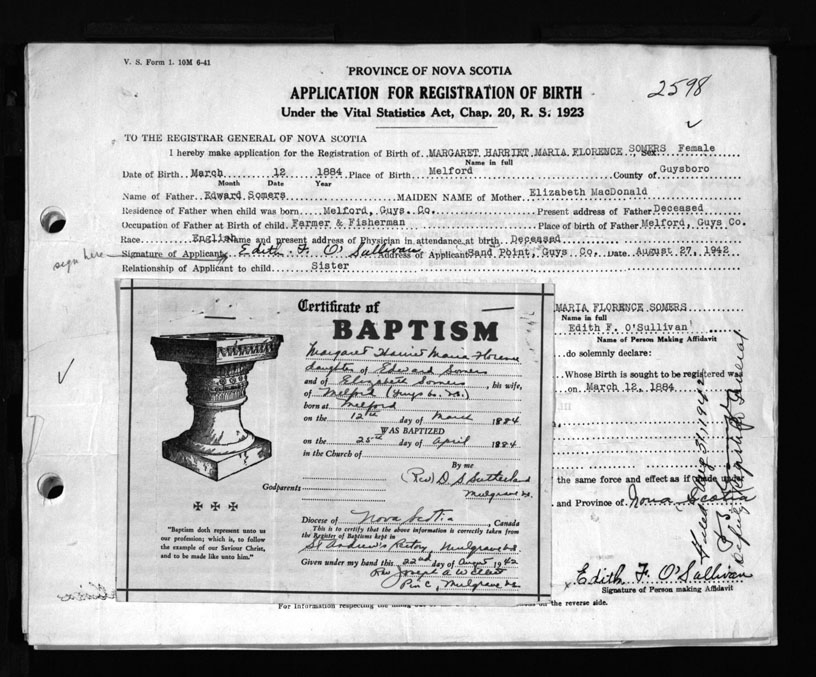 V. S. Form 1. 10M 6-41
PROVINCE OF NOVA SCOTIA
2598
APPLICATION FOR REGISTRATION OF BIRTH
Under the Vital Statistics Act, Chap. 20, R. S. 1923
TO THE REGISTRAR GENERAL OF NOVA SCOTIA
I hereby make application for the Registration of Birth of MARGARET HARRIET MARIA FLORENCE SOMERS, Sex Female
Name in full
Date of Birth March 12 1884 Place of Birth Melford County of Guysboro
Month Date Year
Name of Father Edward Somers MAIDEN NAME of Mother Elizabeth MacDonald
Residence of Father when child was born Melford, Guys. Co. Present address of Father Deceased
Occupation of Father at Birth of child Farmer & Fisherman Place of birth of Father Melford, Guys Co.
Race English Name and present address of Physician in attendance at birth Deceased
sign here
Signature of Applicant x Edith F. O'Sullivan Address of Applicant Sand Point, Guys Co. Date August 27, 1942
Relationship of Applicant to child Sister
Certificate of
BAPTISM
Margaret Harriet Maria Florence
daughter of Edward Somers
and of Elizabeth Somers, his wife,
of Melford (Guys Co. N.S.)
born at Melford
on the 12th day of March 1884
WAS BAPTIZED
on the 25th day of April 1884
in the Church of
By me
(Rev) D. S. Sutherland
Godparents Mulgrave N.S.
Diocese of Nova Scotia, Canada
This is to certify that the above information is correctly taken from
the Register of Baptisms kept in
St Andrew's Rectory, Mulgrave N.S.
Given under my hand this 22nd day of August 1942
Rev Joseph A W
Mulgrave N.S.
"Baptism doth represent unto us
our profession; which is, to follow
the example of our Saviour Christ,
and to be made like unto him."
MARIA FLORENCE SOMERS
Name in full
Edith F. O'Sullivan
Name of Person Making Affidavit
do solemnly declare:
Whose Birth is sought to be registered was
on March 12, 1884
the same force and effect as if made
and Province of Nova Scotia
Filed Aug 31, 1942
Deputy Registrar General
x Edith F. O'Sullivan
Signature of Person making Affidavit
For information respecting the on the reverse side.